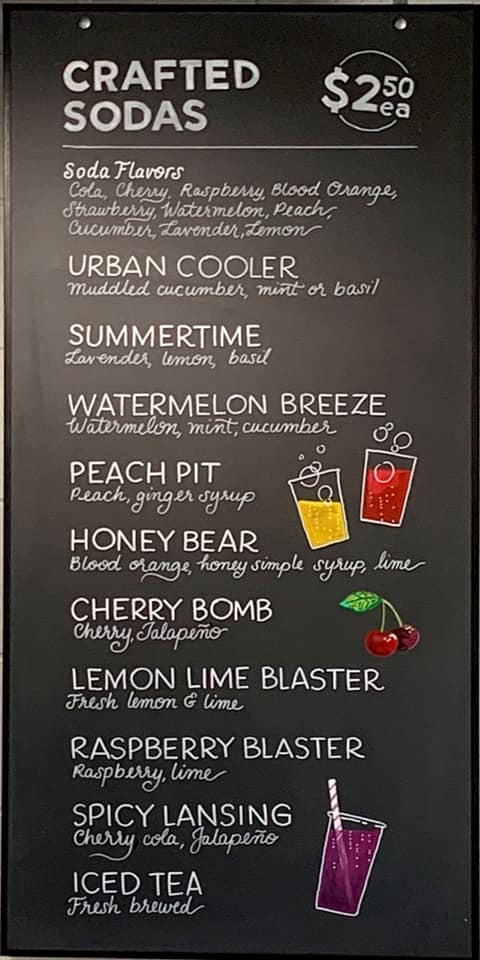 CRAFTED
SODAS
$2 50
ea
Soda Flavors
Cola, Cherry, Raspberry, Blood Orange,
Strawberry, Watermelon, Peach,
Cucumber, Lavender, Lemon
URBAN COOLER
Muddled cucumber, mint or basil
SUMMERTIME
Lavender, lemon, basil
WATERMELON BREEZE
Watermelon, mint, cucumber
PEACH PIT
Peach, ginger syrup
HONEY BEAR
Blood orange, honey simple syrup, lime
CHERRY BOMB
Cherry, Jalapeño
LEMON LIME BLASTER
Fresh lemon & lime
RASPBERRY BLASTER
Raspberry, lime
SPICY LANSING
Cherry cola, Jalapeño
ICED TEA
Fresh brewed